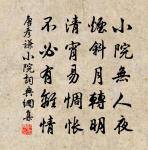 小院無人夜
煙斜月轉明
清宵易惆悵
不必有離情
唐彥謙小院詞典網集